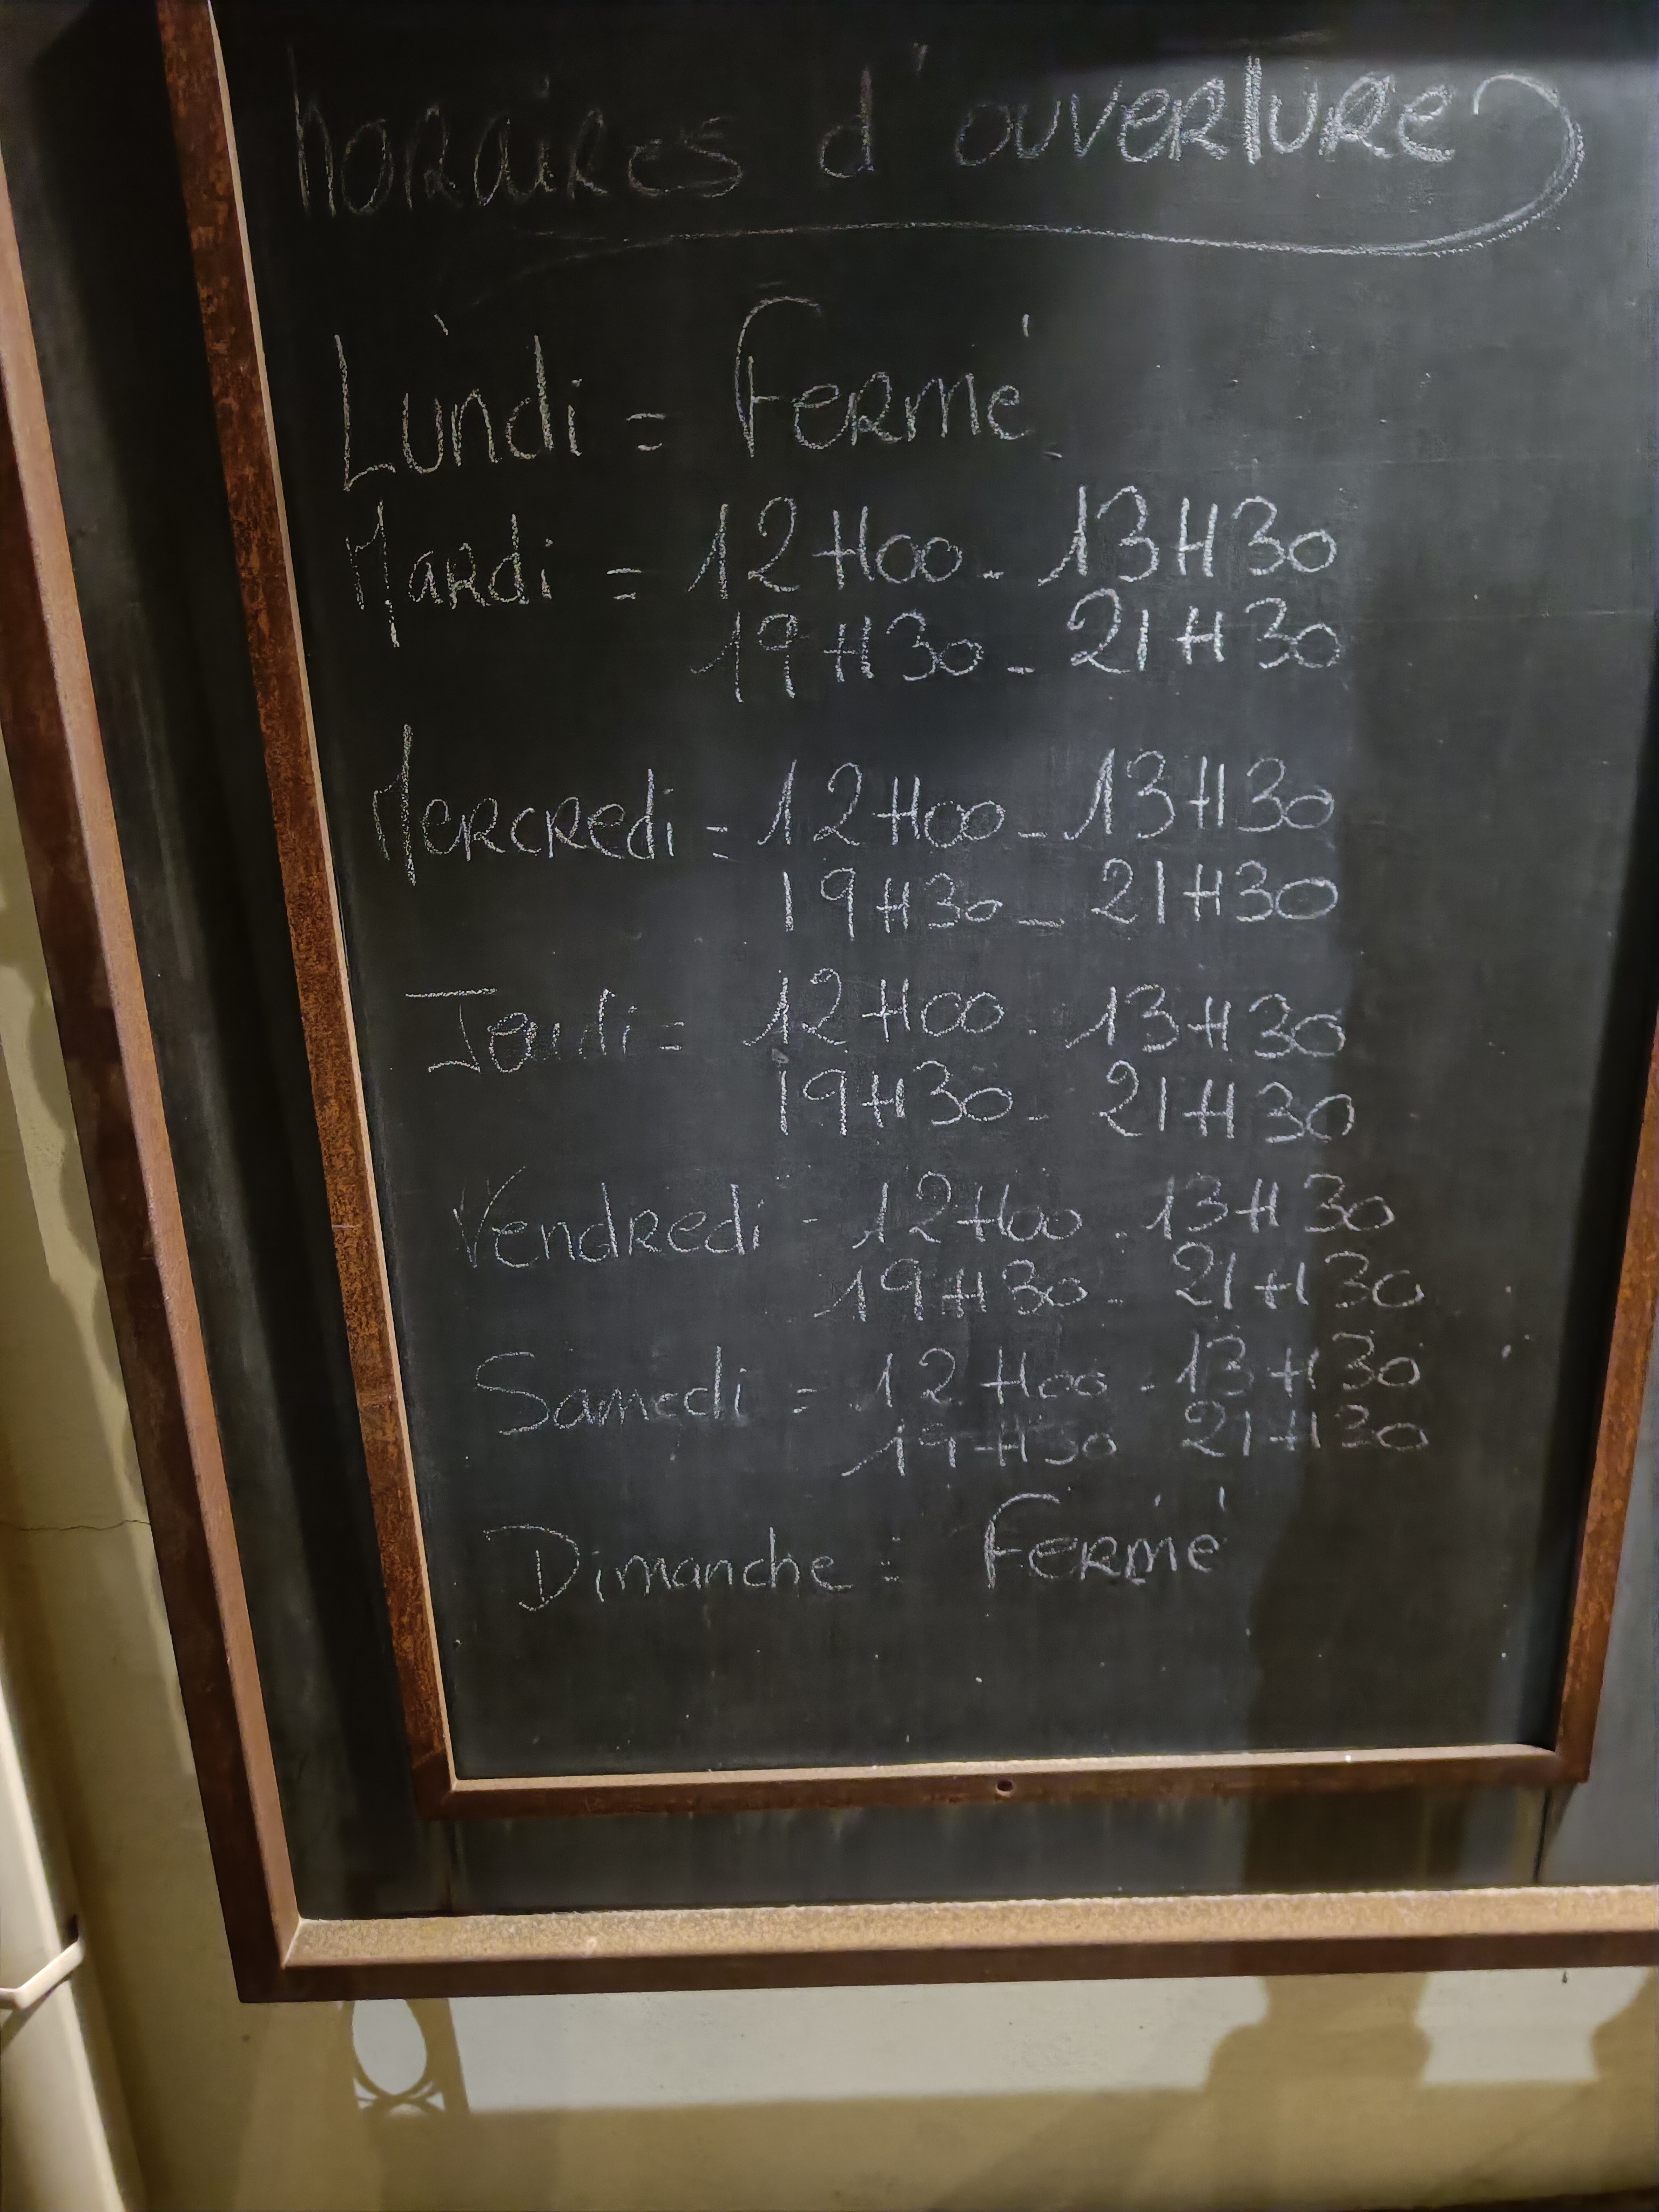 horaires d'ouverture
Lundi = Fermé
Mardi = 12H00 - 13H30
19H30 - 21H30
Mercredi = 12H00 - 13H30
19H30 - 21H30
Jeudi = 12H00 - 13H30
19H30 - 21H30
Vendredi - 12H00 - 13H30
19H30 - 21H30
Samedi = 12H00 - 13H30
19H30 21H30
Dimanche = Fermé